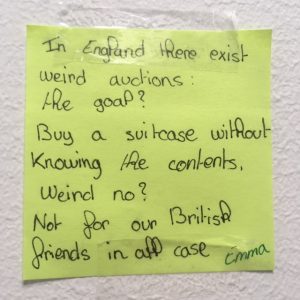 In England there exist
weird auctions:
the goal?
Buy a suitcase without
Knowing the contents.
Weird no?
Not for our British
friends in all case
Emma